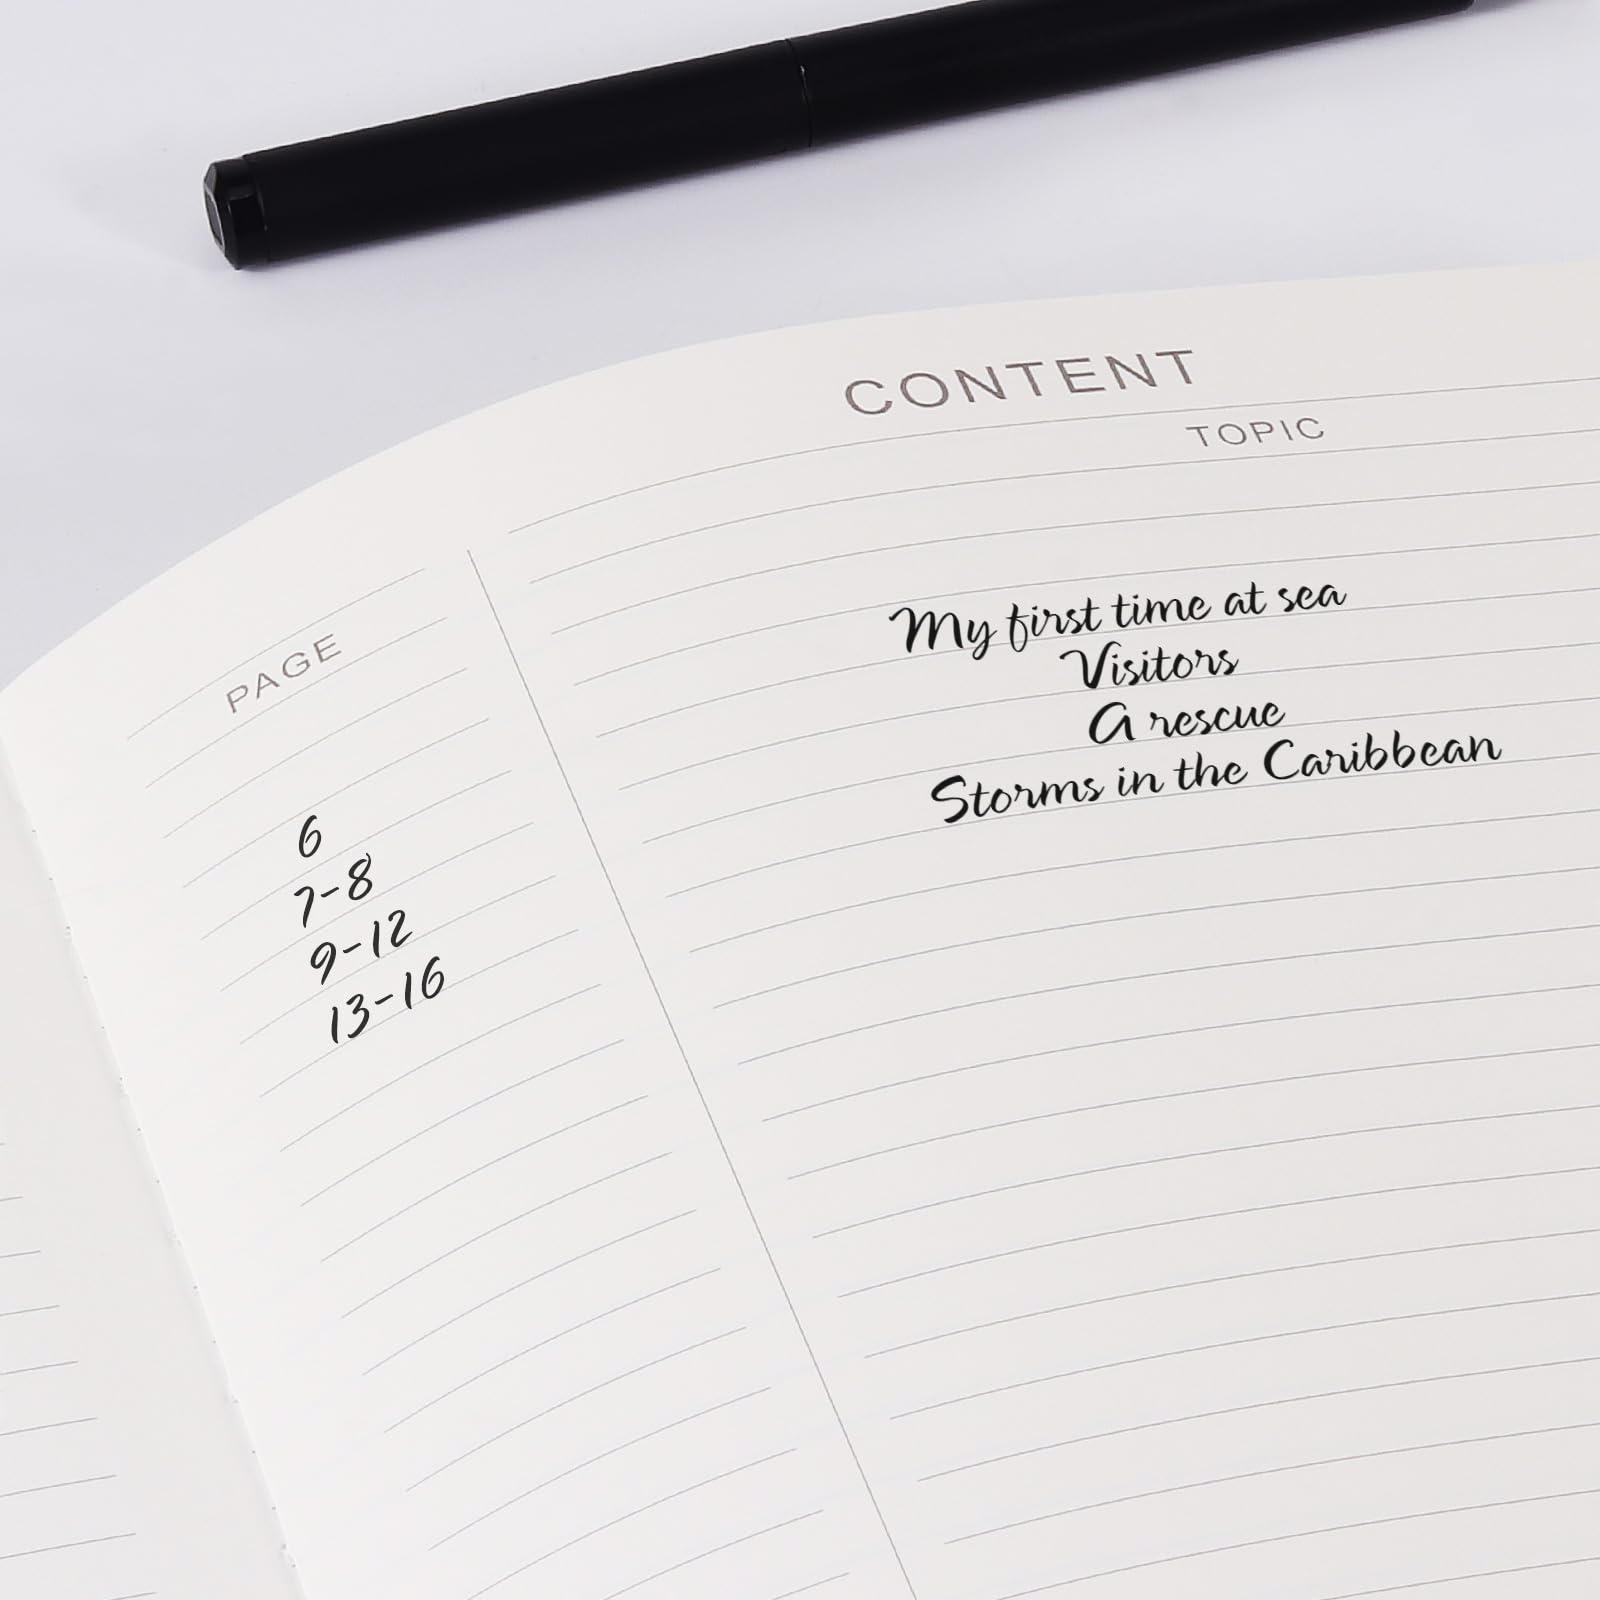 CONTENT
PAGE TOPIC
6 My first time at sea
7-8 Visitors
9-12 A rescue
13-16 Storms in the Caribbean